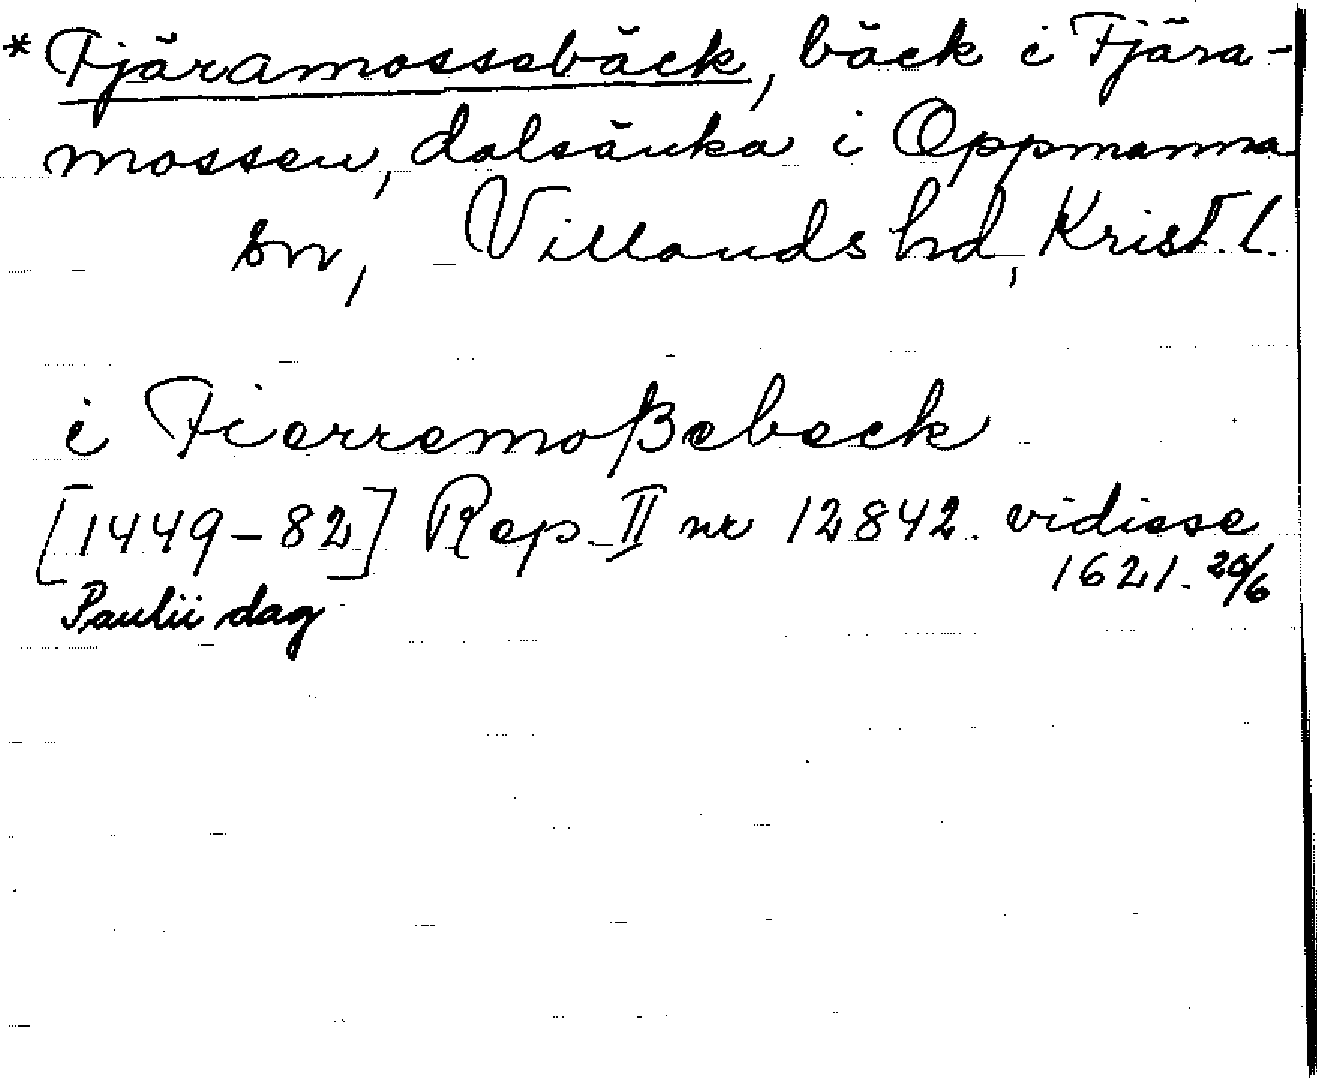 *Fjäramossebäck, bäck i Fjära-
mossen, dalsänka i Oppmanna
sn, Villands hd, Krist. l.
i Fierremoßebeck
[1449-82] Rep. II nr 12842. vidisse
1621. 20/6
Paulii dag